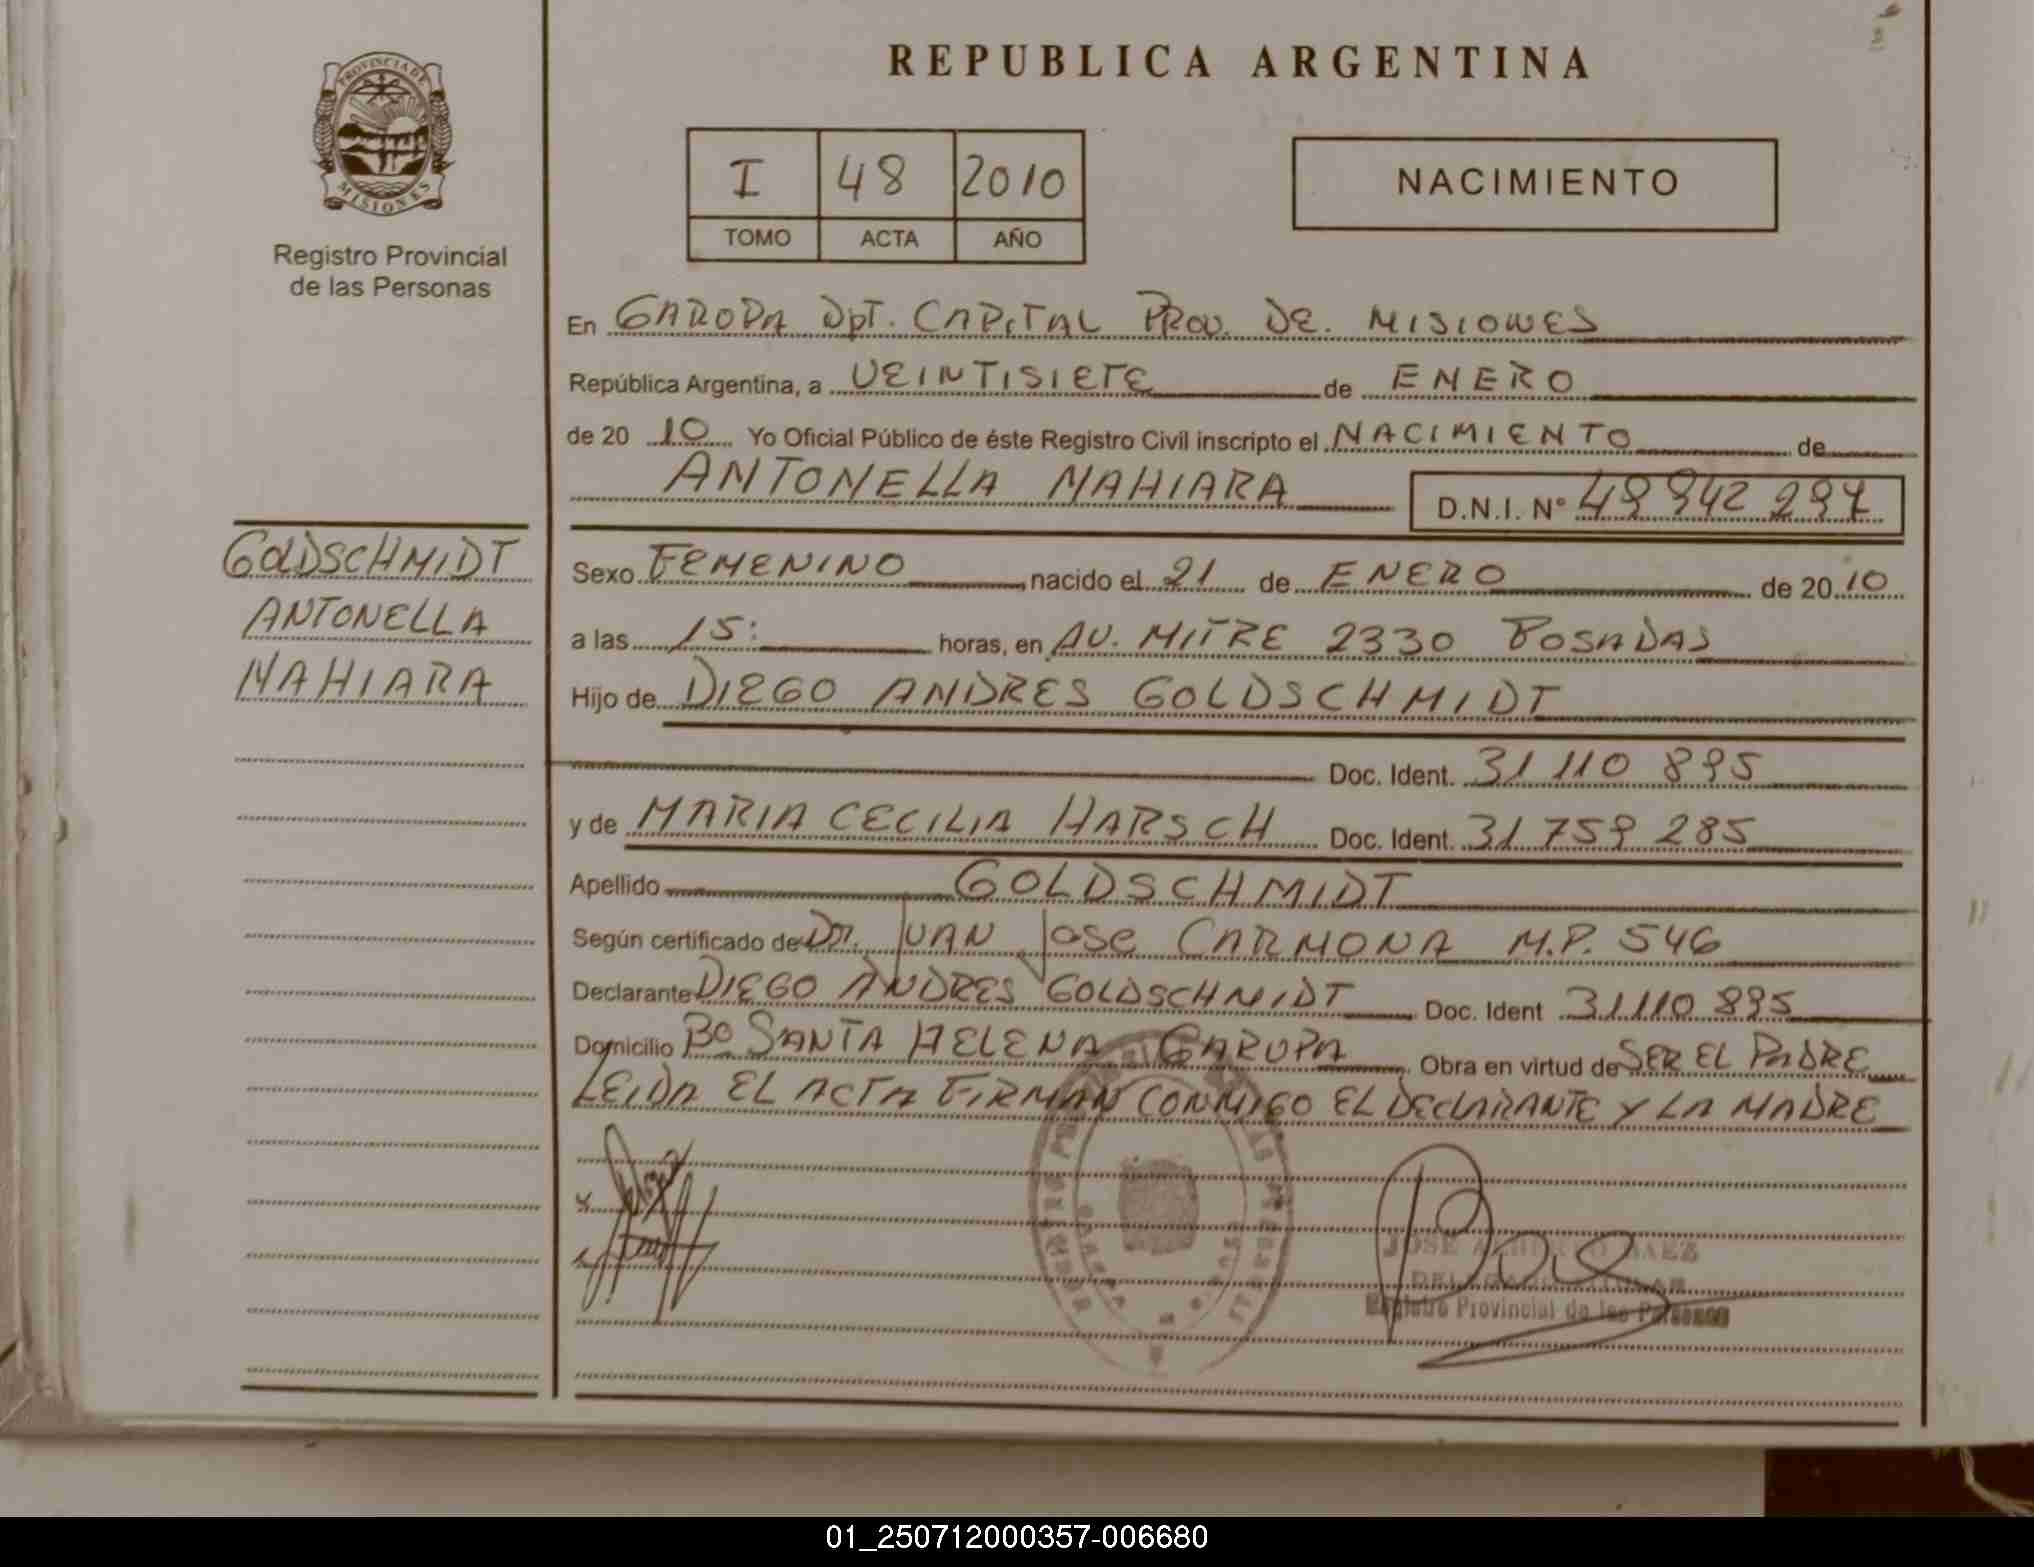 REPUBLICA ARGENTINA
PROVINCIA DE
MISIONES
Registro Provincial
de las Personas
I 48 2010
TOMO ACTA AÑO
NACIMIENTO
En GARUPA DPT. CAPITAL PROV. DE. MISIONES
República Argentina, a VEINTISIETE de ENERO
de 20 10 Yo Oficial Público de éste Registro Civil inscripto el NACIMIENTO de
ANTONELLA NAHIARA D.N.I. Nº 49 942 297
GOLDSCHMIDT
ANTONELLA
NAHIARA
Sexo FEMENINO nacido el 21 de ENERO de 20 10
a las 15: horas, en AV. MITRE 2330 POSADAS
Hijo de DIEGO ANDRES GOLDSCHMIDT
Doc. Ident. 31 110 895
y de MARIA CECILIA HARSCH Doc. Ident. 31 759 285
Apellido GOLDSCHMIDT
Según certificado de DR. JUAN JOSE CARMONA M.P. 546
Declarante DIEGO ANDRES GOLDSCHMIDT Doc. Ident 31110 895
Domicilio Bº SANTA HELENA GARUPA Obra en virtud de SER EL PADRE
LEIDA EL ACTA FIRMAN CONMIGO EL DECLARANTE Y LA MADRE
JOSE ALBERTO BAEZ
DELEGADO TITULAR
Registro Provincial de las Personas
01_250712000357-006680